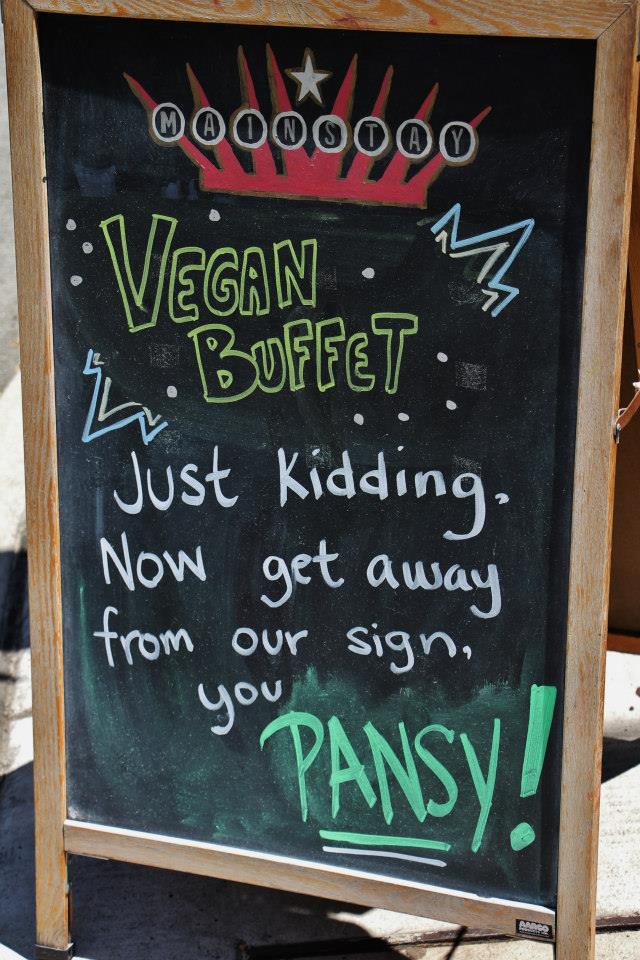 MAINSTAY
VEGAN
BUFFET
Just kidding,
Now get away
from our sign,
you
PANSY!
AARCO